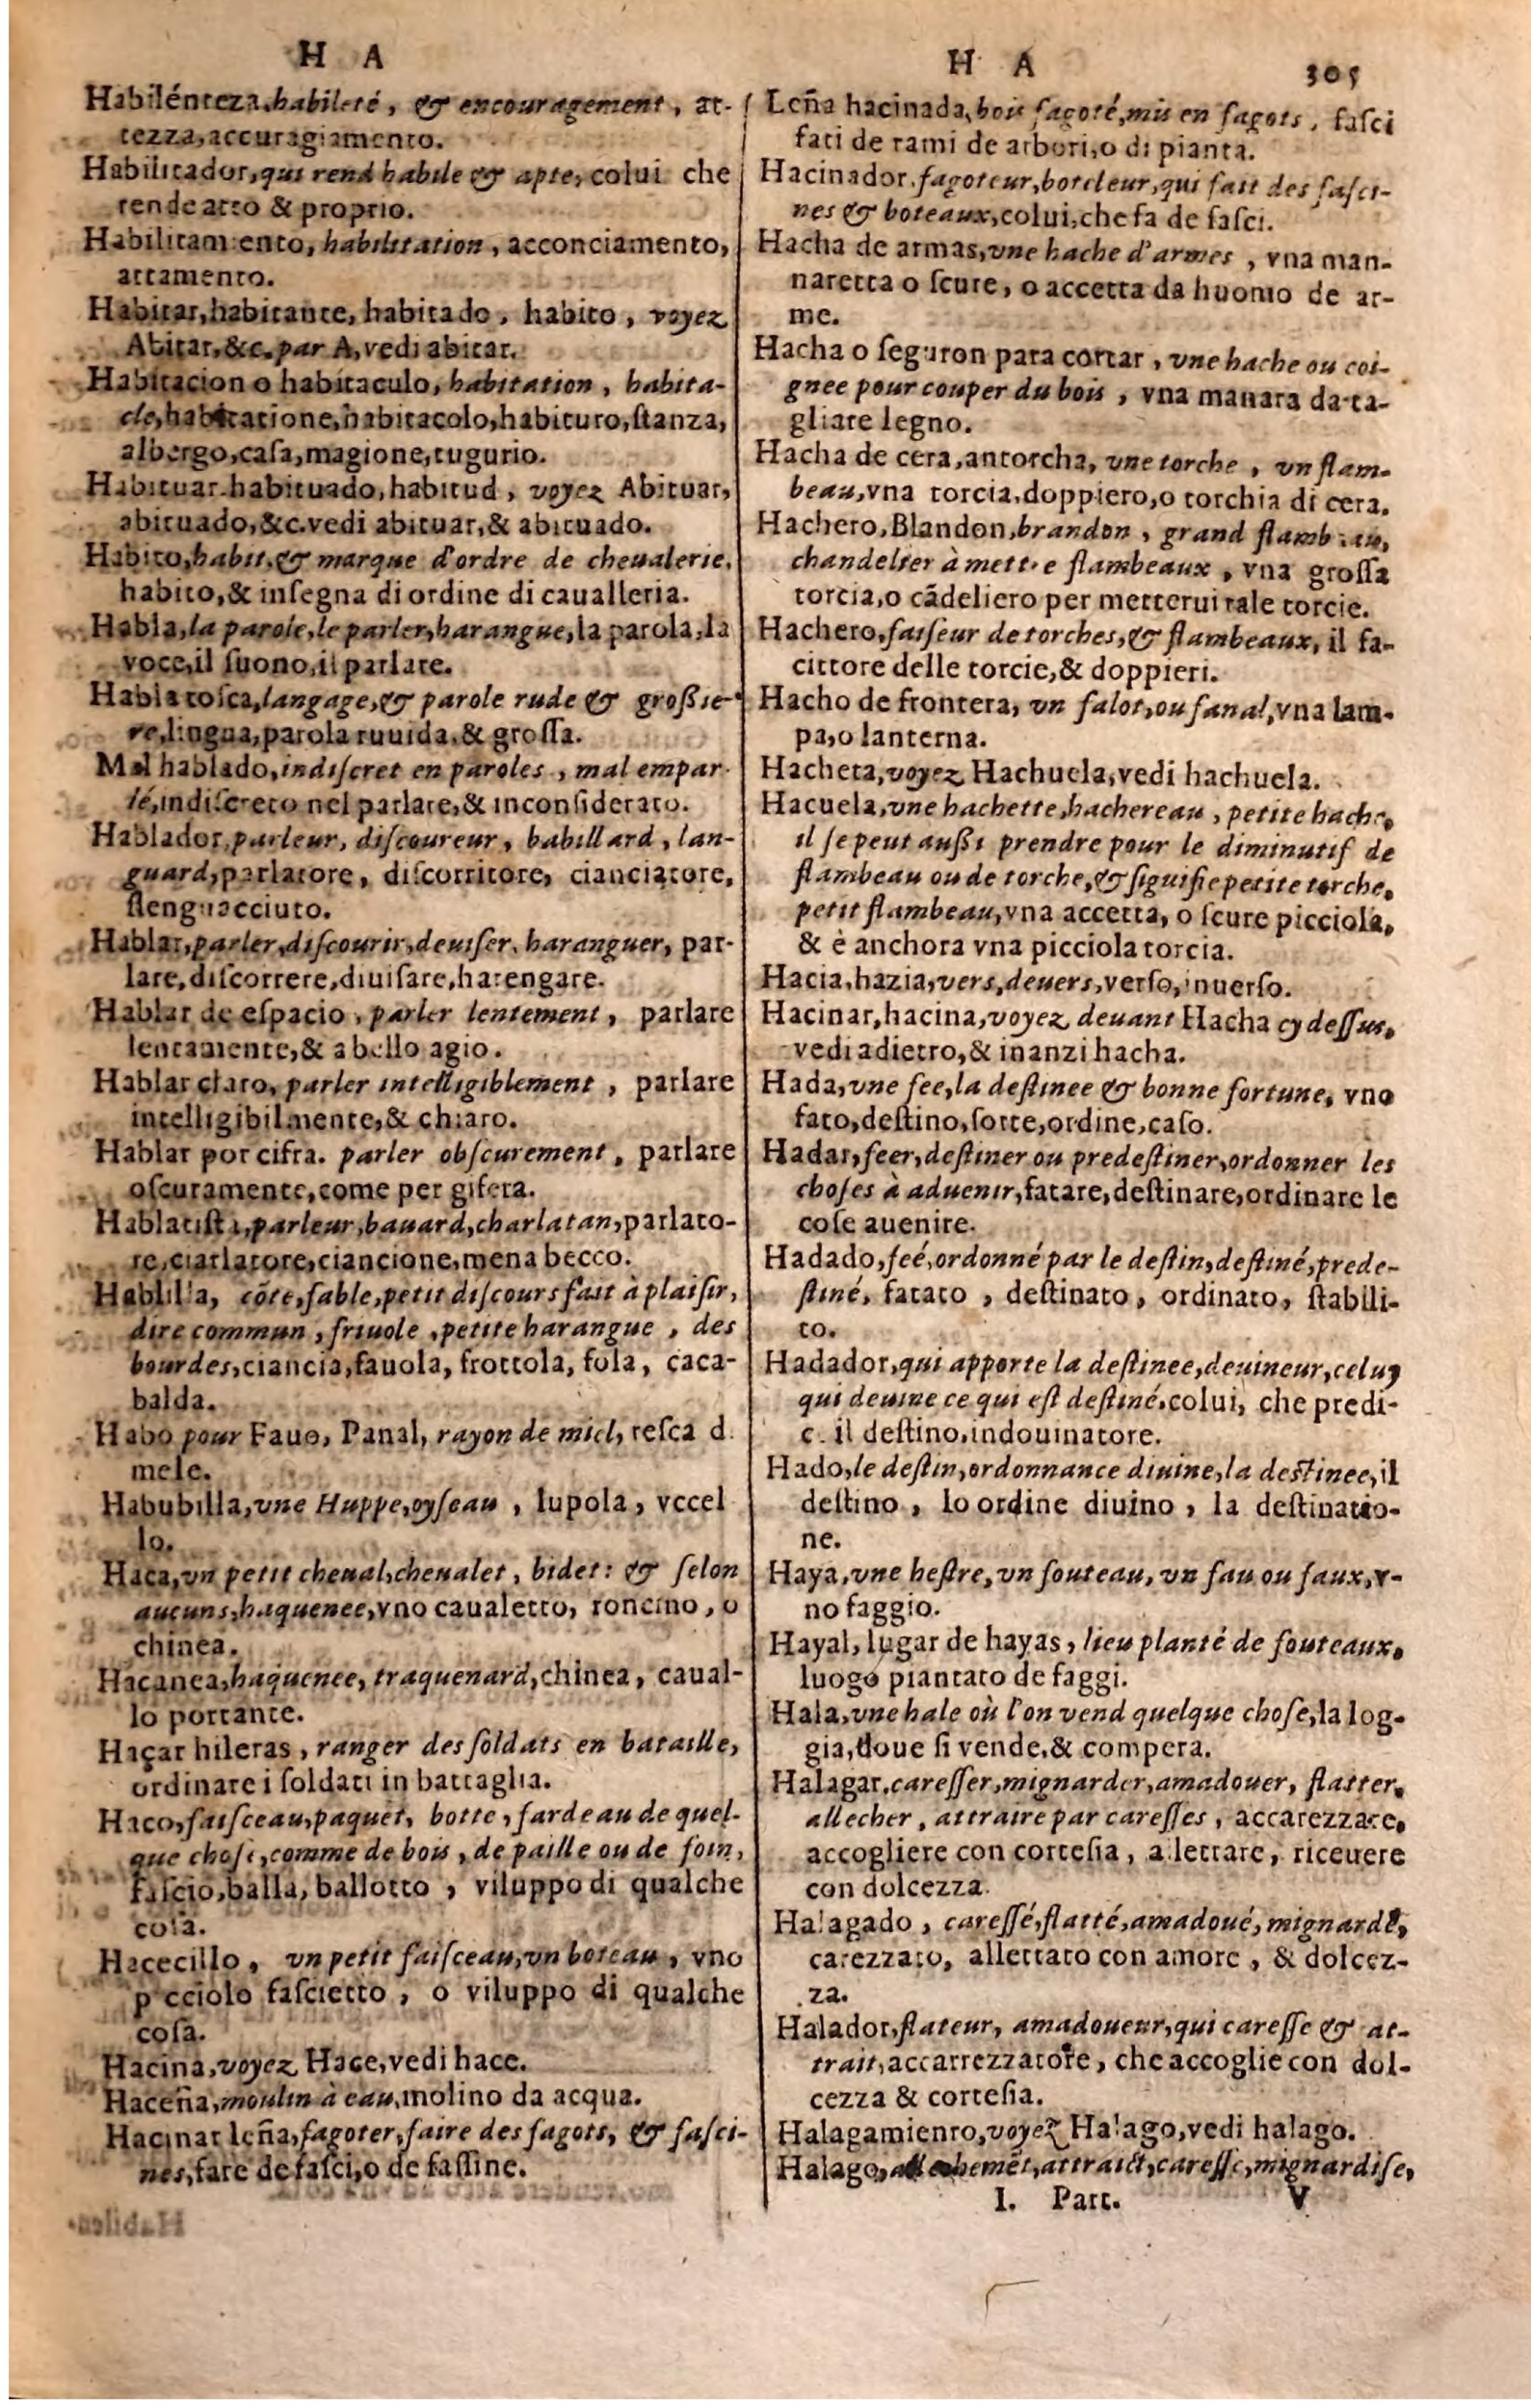 H A
Habilénteza, habileté, & encouragement, at-
tezza, accuragiamento.
Habilitador, qui rend habile & apte, colui che
rende atto & proprio.
Habilitamiento, habilitation, acconciamento,
attamento.
Habitar, habitante, habitado, habito, voyez
Abitar, &c. par A, vedi abitar.
Habitacion o habitaculo, habitation, habita-
cle, habitatione, habitacolo, habituro, ſtanza,
albergo, caſa, magione, tugurio.
Habituar habituado, habitud, voyez Abituar,
abituado, &c. vedi abituar, & abituado.
Habito, habit, & marque d'ordre de cheualerie,
habito, & inſegna di ordine di caualleria.
Habla, la parole, le parler, harangue, la parola, la
voce, il ſuono, il parlare.
Habla toſca, langage, & parole rude & großie-
re, lingua, parola ruuida, & groſſa.
Mal hablado, indiſcret en paroles, mal empar-
lé, indiſcreto nel parlare, & inconſiderato.
Hablador, parleur, diſcoureur, babillard, lan-
guard, parlatore, diſcorritore, cianciatore,
ſlenguacciuto.
Hablar, parler, diſcourir, deuiſer, haranguer, par-
lare, diſcorrere, diuiſare, harengare.
Hablar de eſpacio, parler lentement, parlare
lentamente, & a bello agio.
Hablar claro, parler intelligiblement, parlare
intelligibilmente, & chiaro.
Hablar por cifra. parler obſcurement, parlare
oſcuramente, come per gifera.
Hablatiſta, parleur, bauard, charlatan, parlato-
re, ciarlatore, ciancione, mena becco.
Hablilla, cõte, fable, petit diſcours fait à plaiſir,
dire commun, friuole, petite harangue, des
bourdes, ciancia, fauola, frottola, fola, caca-
balda.
Habo pour Fauo, Panal, rayon de miel, reſca d
mele.
Habubilla, vne Huppe, oyſeau, lupola, vccel
lo.
Haca, vn petit cheual, cheualet, bidet: & ſelon
aucuns, haquenee, vno caualetto, roncino, o
chinea.
Hacanea, haquenee, traquenard, chinea, caual-
lo portante.
Haçar hileras, ranger des ſoldats en bataille,
ordinare i ſoldati in battaglia.
Haco, faiſceau, paquet, botte, fardeau de quel-
que choſe, comme de bois, de paille ou de foin,
faſcio, balla, ballotto, viluppo di qualche
coſa.
Hacecillo, vn petit faiſceau, vn boteau, vno
picciolo faſcietto, o viluppo di qualche
coſa.
Hacina, voyez Hace, vedi hace.
Haceña, moulin à eau, molino da acqua.
Hacinar leña, fagoter, faire des fagots, & faſci-
nes, fare de faſci, o de faſſine.
H A 305
Leña hacinada, bois fagoté, mis en fagots, faſci
fati de rami de arbori, o di pianta.
Hacinador, fagoteur, boteleur, qui fait des faſci-
nes & boteaux, colui, che fa de faſci.
Hacha de armas, vne hache d'armes, vna man-
naretta o ſcure, o accetta da huomo de ar-
me.
Hacha o ſeguron para cortar, vne hache ou coi-
gnee pour couper du bois, vna manara da ta-
gliare legno.
Hacha de cera, antorcha, vne torche, vn flam-
beau, vna torcia, doppiero, o torchia di cera.
Hachero, Blandon, brandon, grand flambeau,
chandelier à mettre flambeaux, vna groſſa
torcia, o cãdeliero per metterui tale torcie.
Hachero, faiſeur de torches, & flambeaux, il fa-
cittore delle torcie, & doppieri.
Hacho de frontera, vn falot, ou fanal, vna lam-
pa, o lanterna.
Hacheta, voyez Hachuela, vedi hachuela.
Hacuela, vne hachette, hachereau, petite hache,
il ſe peut außi prendre pour le diminutif de
flambeau ou de torche, & ſiguifie petite torche,
petit flambeau, vna accetta, o ſcure picciola,
& è anchora vna picciola torcia.
Hacia, hazia, vers, deuers, verſo, inuerſo.
Hacinar, hacina, voyez deuant Hacha cy deſſus,
vedi adietro, & inanzi hacha.
Hada, vne fee, la deſtinee & bonne fortune, vno
fato, deſtino, ſorte, ordine, caſo.
Hadar, feer, deſtiner ou predeſtiner, ordonner les
choſes à aduenir, fatare, deſtinare, ordinare le
coſe auenire.
Hadado, feé, ordonné par le deſtin, deſtiné, prede-
ſtiné, fatato, deſtinato, ordinato, ſtabili-
to.
Hadador, qui apporte la deſtinee, deuineur, celuy
qui deuine ce qui eſt deſtiné, colui, che predi-
c. il deſtino, indouinatore.
Hado, le deſtin, ordonnance diuine, la deſtinee, il
deſtino, lo ordine diuino, la deſtinatio-
ne.
Haya, vne heſtre, vn fouteau, vn fau ou faux, v-
no faggio.
Hayal, lugar de hayas, lieu planté de fouteaux,
luogo piantato de faggi.
Hala, vne hale où l'on vend quelque choſe, la log-
gia, doue ſi vende, & compera.
Halagar, careſſer, mignarder, amadouer, flatter,
allecher, attraire par careſſes, accarezzare,
accogliere con corteſia, allettare, riceuere
con dolcezza.
Halagado, careſſé, flatté, amadoué, mignardé,
carezzato, allettato con amore, & dolcez-
za.
Halador, flateur, amadoueur, qui careſſe & at-
trait, accarrezzatore, che accoglie con dol-
cezza & corteſia.
Halagamienro, voyez Halago, vedi halago.
Halago, allechemẽt, attraict, careſſe, mignardiſe,
I. Part. V